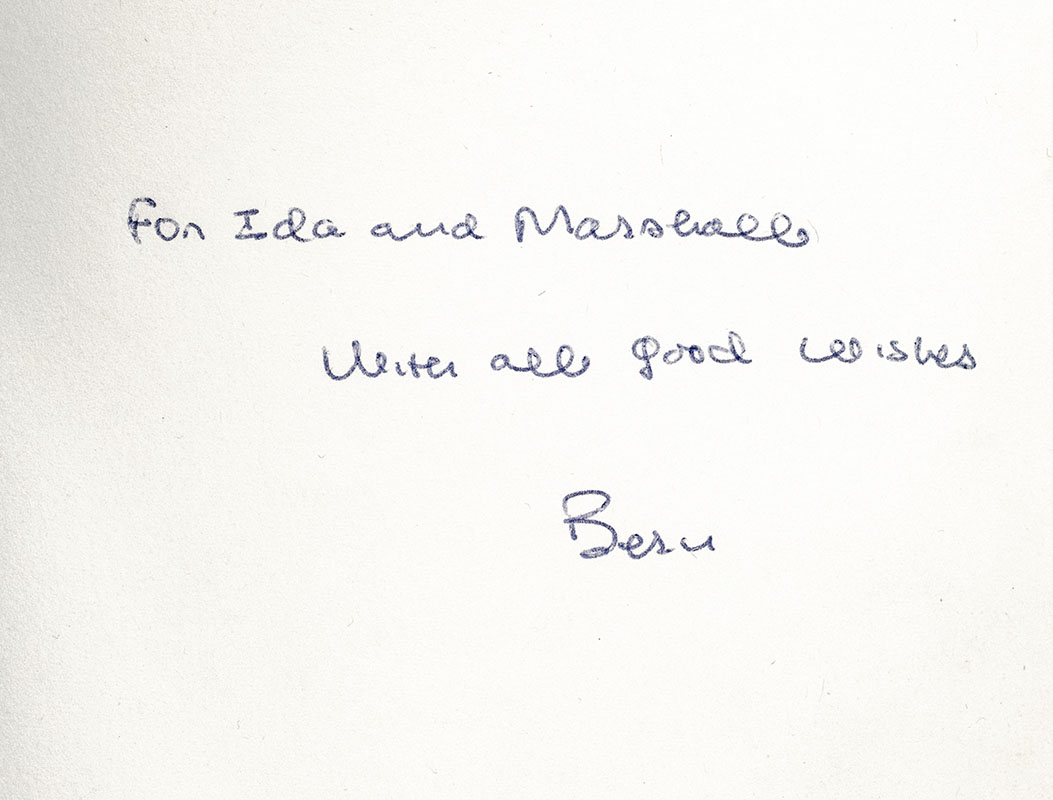 For Ida and Marshall
With all good wishes
Bern